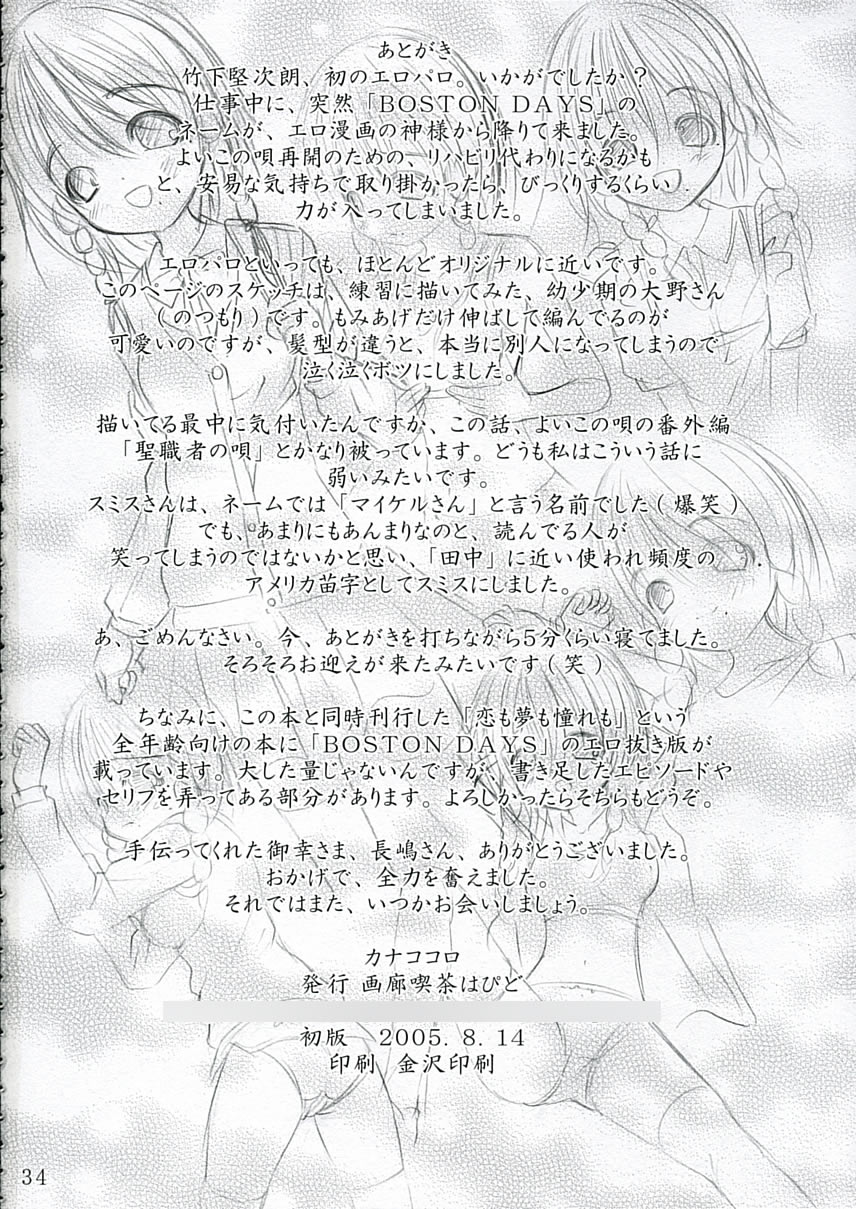 あとがき
竹下堅次朗、初のエロパロ。いかがでしたか？
仕事中に、突然「BOSTON DAYS」の
ネームが、エロ漫画の神様から降りて来ました。
よいこの唄再開のための、リハビリ代わりになるかも
と、安易な気持ちで取り掛かったら、びっくりするくらい
力が入ってしまいました。
エロパロといっても、ほとんどオリジナルに近いです。
このページのスケッチは、練習に描いてみた、幼少期の大野さん
（のつもり）です。もみあげだけ伸ばして編んでるのが
可愛いのですが、髪型が違うと、本当に別人になってしまうので
泣く泣くボツにしました。
描いてる最中に気付いたんですが、この話、よいこの唄の番外編
「聖職者の唄」とかなり被っています。どうも私はこういう話に
弱いみたいです。
スミスさんは、ネームでは「マイケルさん」と言う名前でした（爆笑）
でも、あまりにもあんまりなのと、読んでる人が
笑ってしまうのではないかと思い、「田中」に近い使われ頻度の
アメリカ苗字としてスミスにしました。
あ、ごめんなさい。今、あとがきを打ちながら５分くらい寝てました。
そろそろお迎えが来たみたいです（笑）
ちなみに、この本と同時刊行した「恋も夢も憧れも」という
全年齢向けの本に「BOSTON DAYS」のエロ抜き版が
載っています。大した量じゃないんですが、書き足したエピソードや
セリフを弄ってある部分があります。よろしかったらそちらもどうぞ。
手伝ってくれた御幸さま、長嶋さん、ありがとうございました。
おかげで、全力を奮えました。
それではまた、いつかお会いしましょう。
カナココロ
発行 画廊喫茶はぴど
初版　2005. 8. 14
印刷　金沢印刷
34